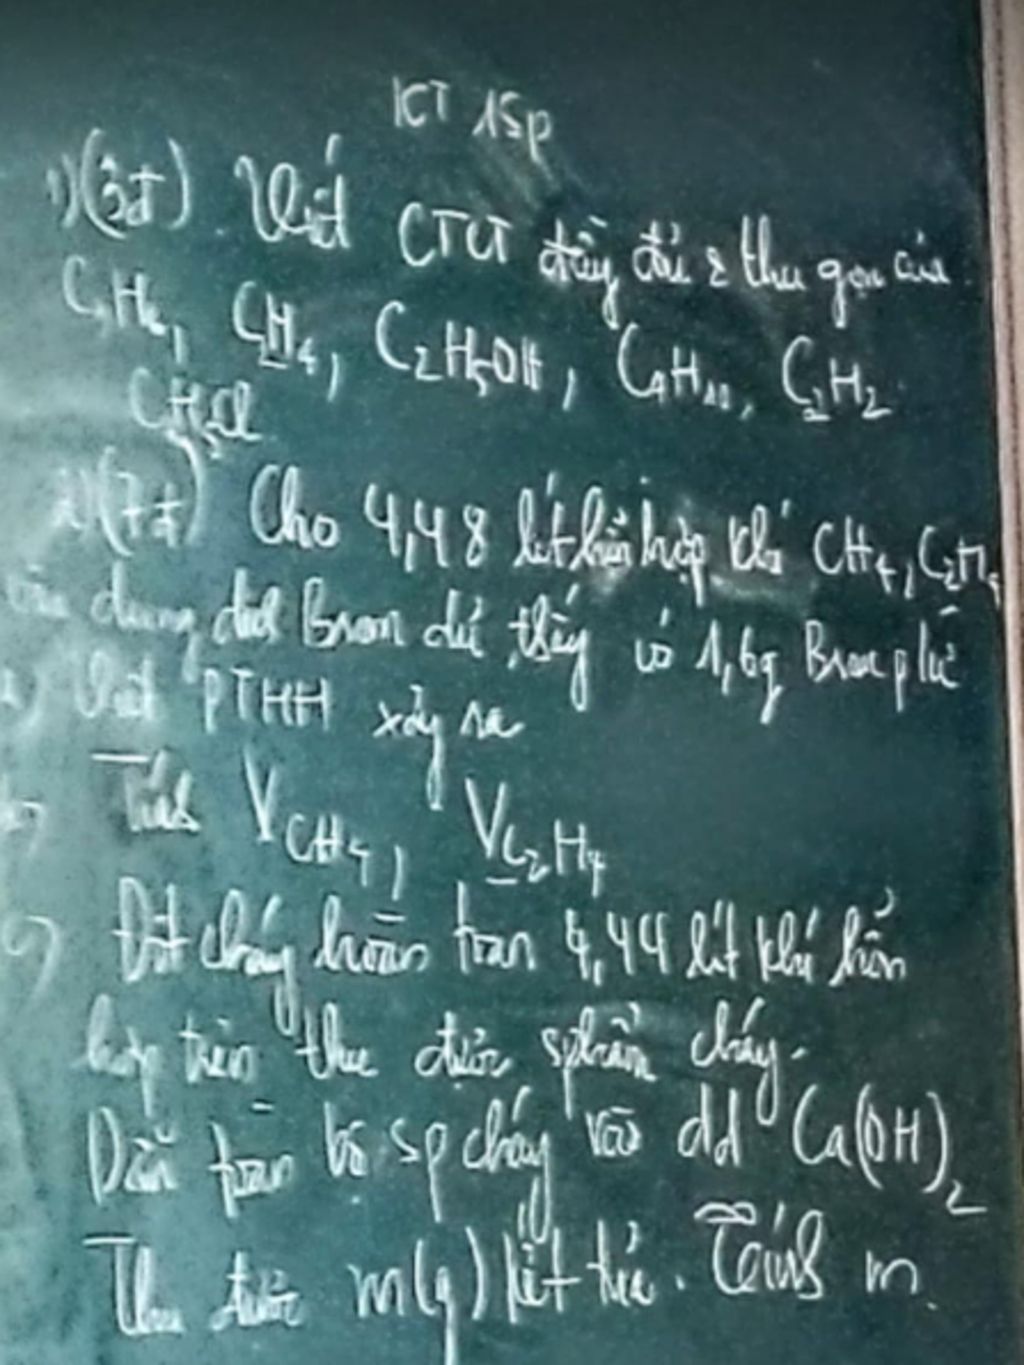 KT 15p
1) (3đ). Viết CTCT đầy đủ & thu gọn của
CH4, C2H5OH, C4H10, C2H2
2) (7đ) Cho 4,48 lít hỗn hợp khí CH4, C2H4
dung dịch Brom dư, thấy có 1,6g Brom p/ứ
a) Viết PTHH xảy ra
b) Tính VCH4, VC2H4
c) Đốt cháy hoàn toàn 4,44 lít khí hỗn
hợp trên thu được sphẩm cháy.
Dẫn toàn bộ sp cháy vào dd Ca(OH)2
Thu được m(g) kết tủa. Tính m.